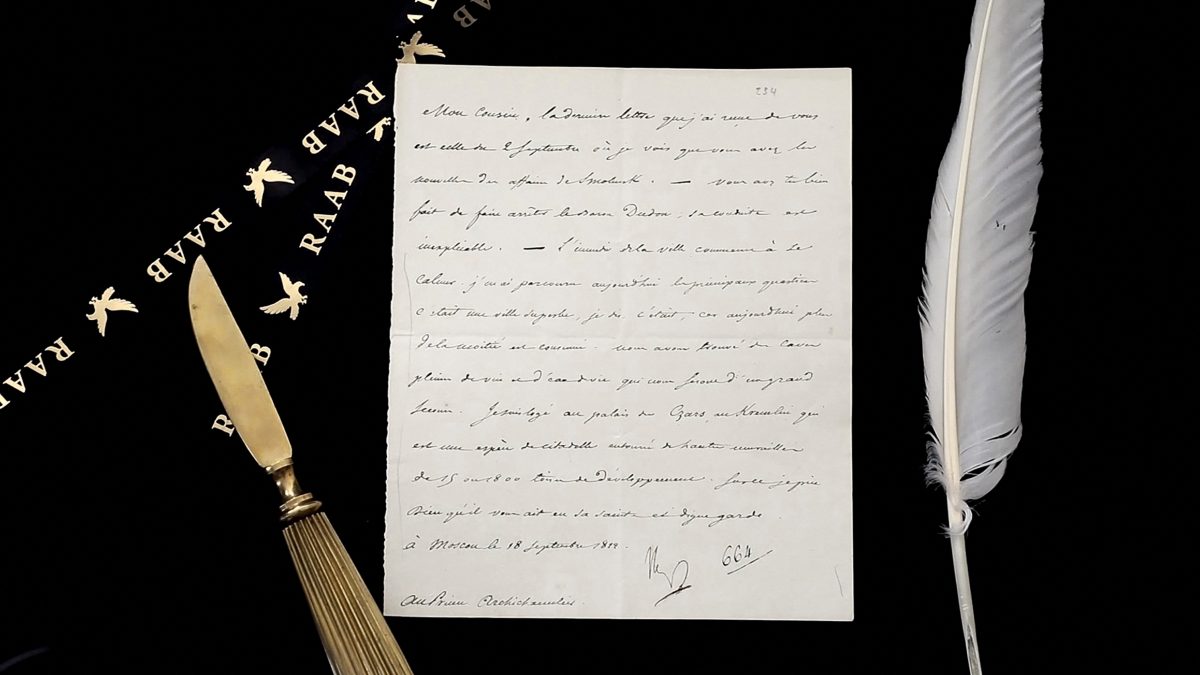 RAAB
RAAB
RAAB
RAAB
234
Mon Cousin, la dernière lettre que j'ai reçue de vous
est celle du 2 Septembre où je vois que vous avez les
nouvelles des affaires de Smolensk. — Vous avez très bien
fait de faire arrêter le Baron Dudon; sa conduite est
inexplicable. — L'incendie de la ville commence à se
calmer. j'en ai parcouru aujourd'hui les principaux quartiers
c'était une ville superbe, je dis c'était, car aujourd'hui plus
de la moitié est consumée. nous avons trouvé des caves
pleines de vin et d'eau de vie qui nous seront d'un grand
secours. Je suis logé au palais des Czars, au Kremlin qui
est une espèce de citadelle entourée de hautes murailles
de 15 ou 1800 toises de développement. Sur ce je prie
Dieu qu'il vous ait en sa sainte et digne garde
à Moscou le 18 Septembre 1812.
Np
664
au Prince Archichancelier.